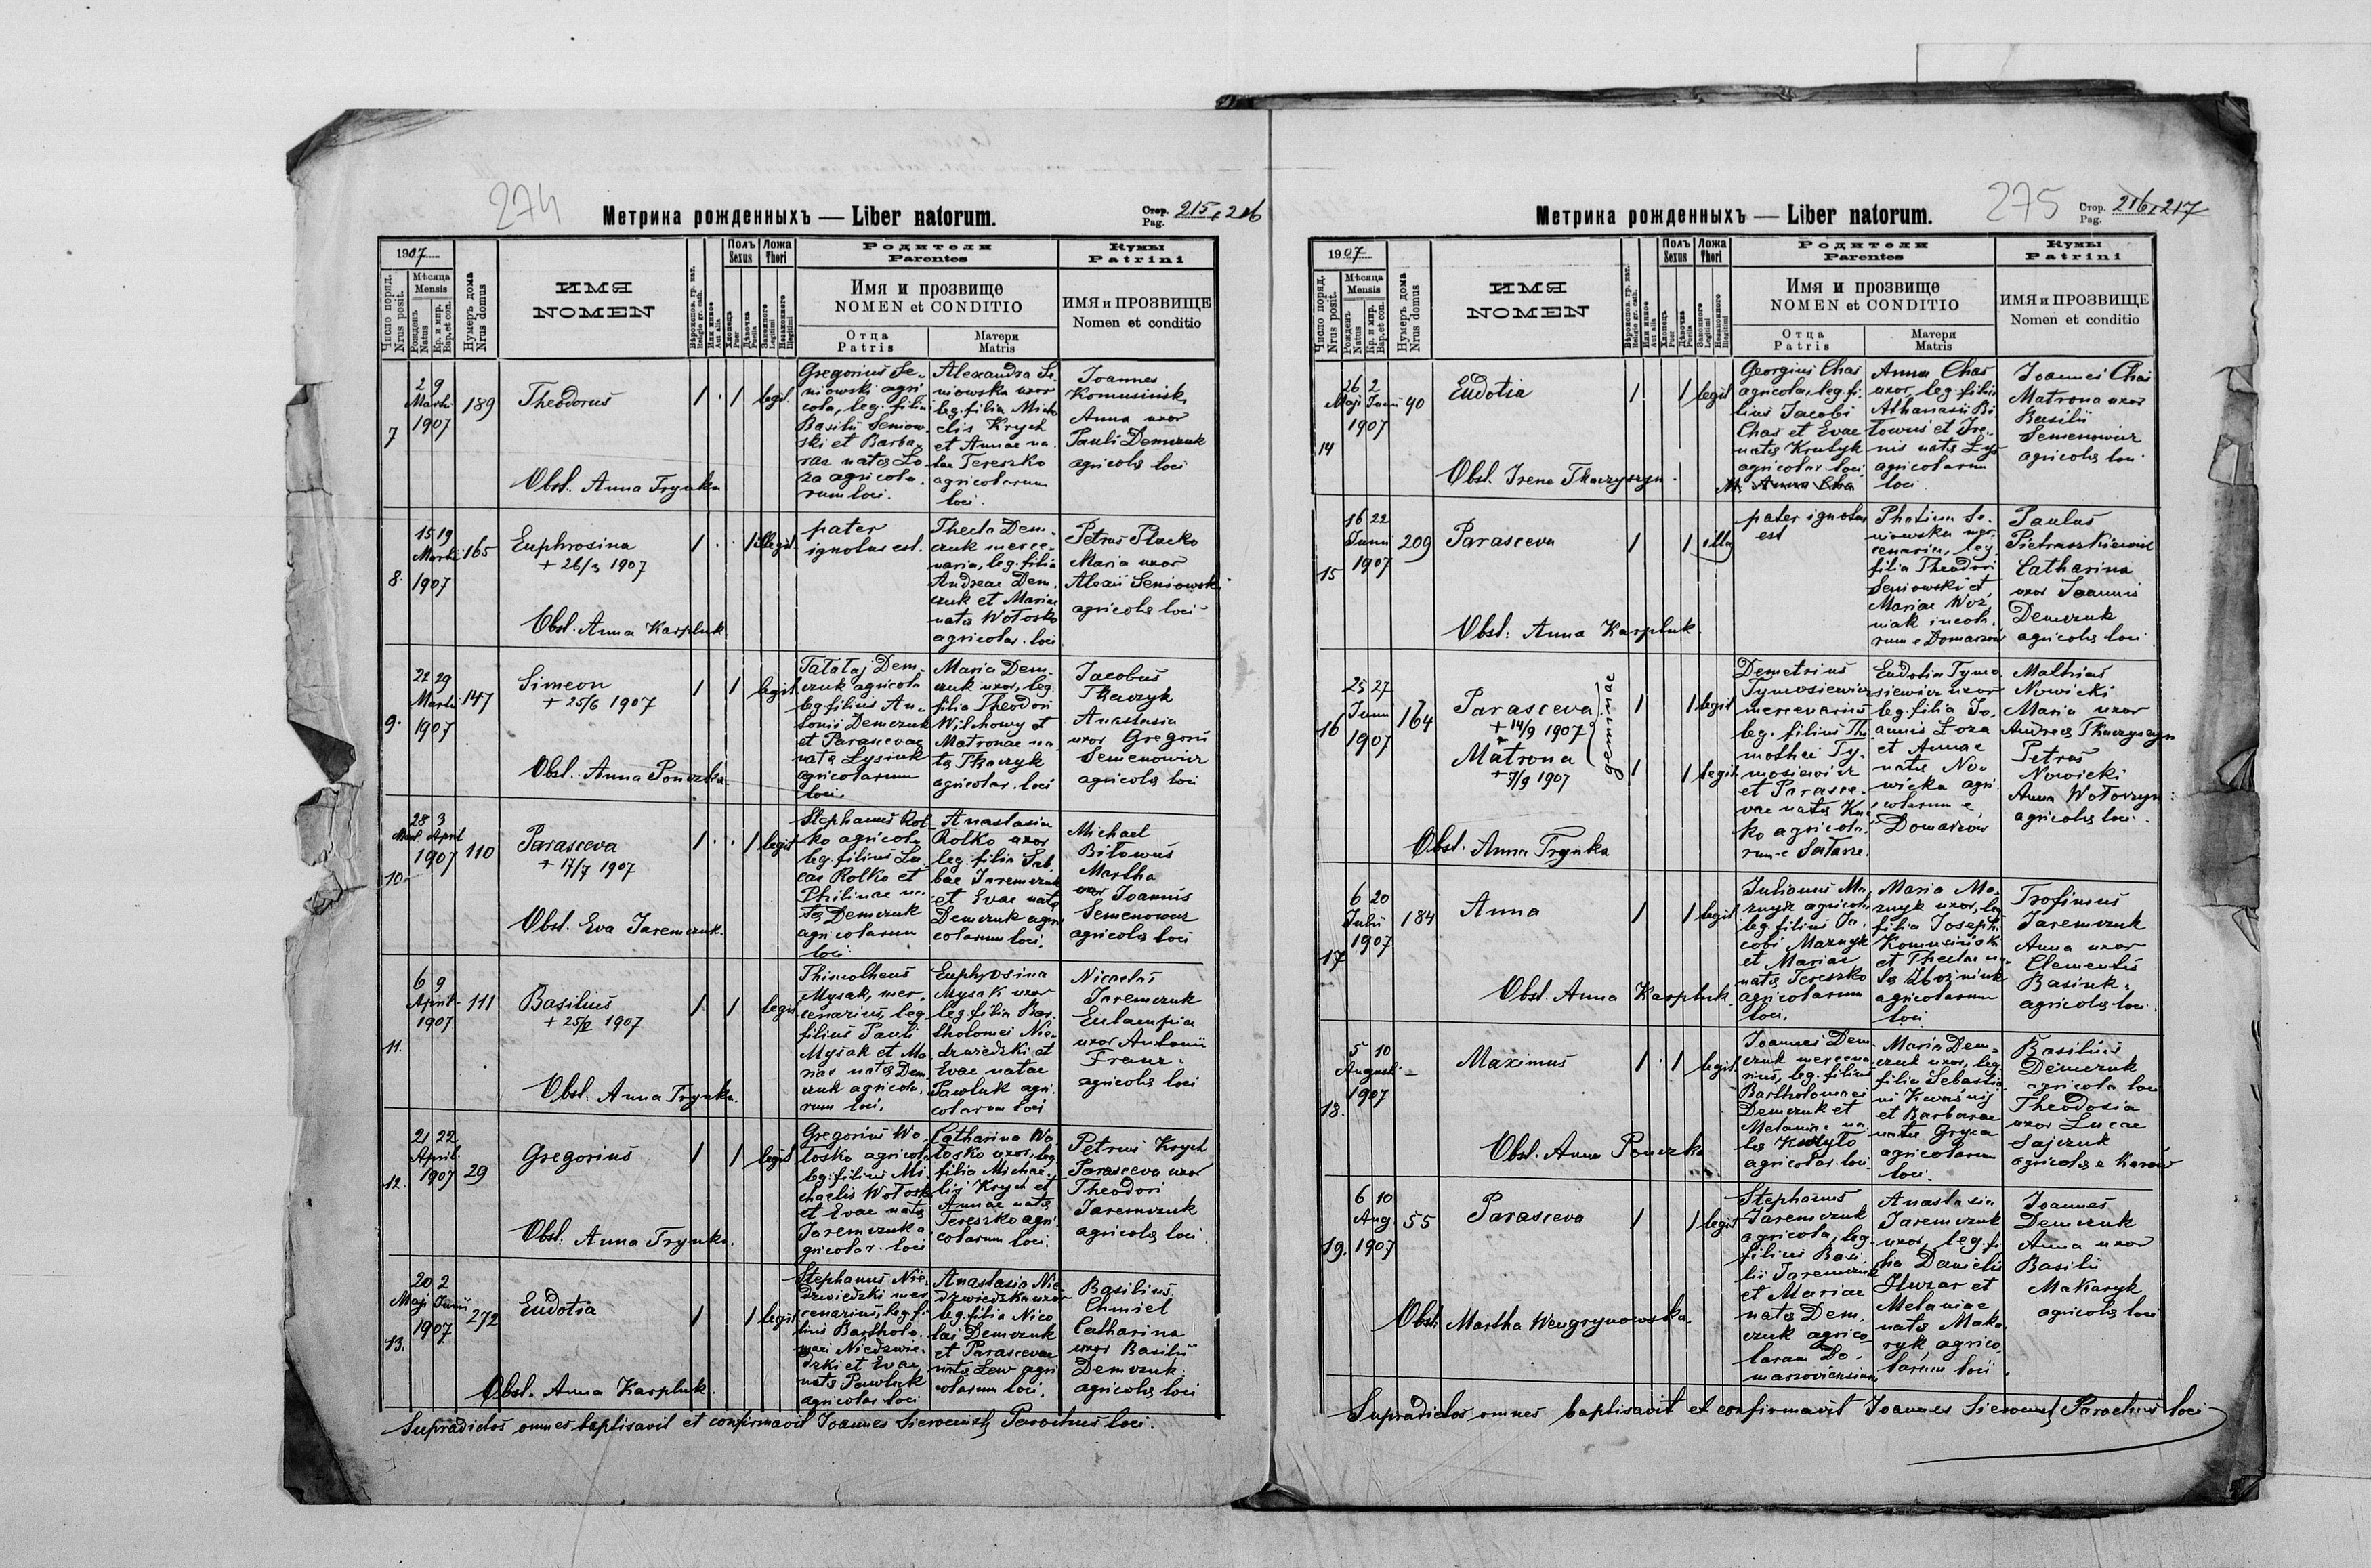 274
Метрика рожденныхъ — Liber natorum.
Стор. Pag. 215, 216
1907
Число поряд. Nrus posit.
Мѣсяца Mensis
Рожденъ Natus
Кр. и мир. Bap. et con.
Нумеръ дома Nrus domus
ИМЯ
NOMEN
Вѣроиспов. гр. кат. Religio gr. cath.
Или инное Aut alia
Полъ Sexus
Хлопецъ Puer
Дѣвочка Puella
Ложа Thori
Законного Legitimi
Незаконного Illegitimi
Родители
Parentes
Имя и прозвище
NOMEN et CONDITIO
Отца
Patris
Матери
Matris
Кумы
Patrini
ИМЯ и ПРОЗВИЩЕ
Nomen et conditio
7
2 9
Martii
1907
189
Theodorus
1 1 legit.
Gregorius Se-
niowski agri
cola, leg. filius
Basilii Seniow-
ski et Barba-
rae nata Lo
za agricola-
rum loci.
Alexandra Se
niowska uxor
leg. filia Micha
elis Krych
et Annae na-
tae Tereszko
agricolarum
loci.
Joannes
Anna uxor
Pauli Demczuk
agricolae loci
Obst. Anna Trynka
8.
15 19
Martii
1907
165
Euphrosina
+ 26/3 1907
1 1 illegit.
pater
ignotus est.
Thecla Dem-
czuk merce-
naria, leg. filia
Andreae Dem-
czuk et Mariae
nata Wołosko
agricolar. loci
Petrus Placko
Maria uxor
Alexii Seniowski
agricolae loci
Obst. Anna Karpluk.
9.
22 29
Martii
1907
147
Simeon
+ 25/6 1907
1 1 legit
czuk agricola
leg filius An-
tonii Demczuk
et Parascevae
nata Łysiuk
agricolarum
loci.
Maria Dem-
czuk uxor, leg.
filia Theodori
Wilchowy et
Matronae na
ta Tkaczyk
agricolar. loci
Jacobus
Tkaczyk
Anastasia
uxor Gregorii
Semenowicz
agricolae loci
Obst. Anna Ponczka.
10.
28 3
Mart. April
1907
110
Parasceva
+ 17/7 1907
1 1 legit
Stephanus Rol-
ko agricola
leg. filius Lu-
cae Rolko et
Philinae na-
ta Demczuk
agricolarum
loci
Anastasia
Rolko uxor
leg. filia Sab-
bae Jaremczuk
et Evae nata
Demczuk agri
colarum loci.
Michael
Biłowus
Martha
uxor Joannis
Semenowicz
agricolae loci
Obst. Eva Jaremczuk.
11.
6 9
April
1907
111
Basilius
+ 25/2 1907
1 1 legit
Thimotheus
Mysak, mer-
cenarius, leg.
filius Pauli
Mysak et Ma-
riae nata Dem-
czuk agricola-
rum loci.
Euphrosina
Mysak uxor
leg. filia Bar-
tholomei Nie-
dzwiedzki et
Evae natae
Pawluk agri-
colarum loci
Nicolaus
Jaremczuk
Eulampia
uxor Antonii
Franz
agricolae loci
Obst. Anna Trynka.
12.
21 22
April.
1907
29
Gregorius
1 1 legit
Gregorius Wo-
łosko agricola
leg. filius Mi
chaelis Wołosk
et Evae nata
Jaremczuk a-
gricolar. loci
Catharina Wo
łosko uxor, leg.
filia Michae-
lis Krych et
Annae nata
Tereszko agri
colarum loci.
Petrus Krych
Parasceva uxor
Theodori
Jaremczuk
agricolae loci.
Obst. Anna Trynka.
13.
20 2
Maji Junii
1907
272
Eudotia
1 1 legit
Stephanus Nie-
dzwiedzki mer
cenarius, leg. fi-
lius Bartholo-
maei Niedzwie-
dzki et Evae
nata Pawluk
agricolar loci
Anastasia Nie
dzwiedzka uxor
leg. filia Nico
lai Demczuk
et Parascevae
nata Lew agri
colarum loci.
Basilius
Chmiel
Catharina
uxor Basilii
Demczuk
agricolae loci
Obst. Anna Karpluk.
Supradictos omnes baptisavit et confirmavit Joannes Parochus loci.
275
Метрика рожденныхъ — Liber natorum.
Стор. Pag. 216, 217
1907
Число поряд. Nrus posit.
Мѣсяца Mensis
Рожденъ Natus
Кр. и мир. Bap. et con.
Нумеръ дома Nrus domus
ИМЯ
NOMEN
Вѣроиспов. гр. кат. Religio gr. cath.
Или инное Aut alia
Полъ Sexus
Хлопецъ Puer
Дѣвочка Puella
Ложа Thori
Законного Legitimi
Незаконного Illegitimi
Родители
Parentes
Имя и прозвище
NOMEN et CONDITIO
Отца
Patris
Матери
Matris
Кумы
Patrini
ИМЯ и ПРОЗВИЩЕ
Nomen et conditio
14
26 2
Maji Junii
1907
40
Eudotia
1 1 legit
Georgius Chas
agricola, leg. fi-
lius Jacobi
Chas et Evae
nata Krutyk
agricolar. loci
Anna Chas
uxor, leg. filia
Athanasii Bi
łowus et Ire-
nis nata Łys
agricolarum
loci
Joannes Chas
Matrona uxor
Basilii
Semenowicz
agricolae loci
Obst. Irena Tkaczyszyn.
15
16 22
Junii
1907
209
Parasceva
1 1 illeg
pater ignotus
est
Photina Se-
niowska mer-
cenaria, leg.
filia Theodori
Seniowski et
Mariae Woź-
niak incola-
rum e Domaszow
Paulus
Pietraszkiewicz
Catharina
uxor Joannis
Demczuk
agricolae loci
Obst: Anna Karpluk.
16
25 27
Junii
1907
164
Parasceva
+ 14/9 1907
Matrona
+ 7/9 1907
geminae
1 1 legit
1 1 legit
Demetrius
Tymosiewicz
mercenarius
leg. filius Thi
mothei Ty-
mosiewicz
et Parasce-
vae nata
ko agricola-
rum e
Eudotia Tymo
siewicz uxor
leg. filia Jo-
annis Łoza
et Annae
nata No-
wicka agri
colarum e
Domaszow
Mathias
Nowicki
Maria uxor
Andreae Tkaczyszyn
Petrus
Nowicki
Anna Wołoszyn
agricolae loci.
Obst. Anna Trynka
17
6 20
Julii
1907
184
Anna
1 1 legit
Julianus Ma-
znyk agricola
leg. filius Ja-
cobi Maznyk
et Mariae
nata Tereszko
agricolarum
loci.
Maria Ma-
znyk uxor, leg.
filia Josephi
et Theclae na-
ta
agricolarum
loci
Trofimus
Jaremczuk
Anna uxor
Clementis
Basiuk
agricolae loci
Obst. Anna Karpluk.
18.
5 10
Augusti
1907
–
Maximus
1 1 legit
Joannes Dem-
czuk mercena-
rius, leg. filius
Bartholomaei
Demczuk et
Melaniae na-
ta
agricolar. loci
Maria Dem-
czuk uxor, leg.
filia Sebastia
ni Kwaśnij
et Barbarae
natae Gryca
agricolarum
loci.
Basilius
Demczuk
agricola loci
Theodosia
uxor Lucae
Sajczuk
agricolae e
Obst. Anna Ponczka
19.
6 10
Aug
1907
55
Parasceva
1 1 legit
Stephanus
Jaremczuk
agricola, leg.
filius Basi-
lii Jaremczuk
et Mariae
nata Dem-
czuk agrico-
larum Do-
maszoviensium
Anastasia
Jaremczuk
uxor, leg. fi
lia Danielis
Huzar et
Melaniae
nata Maka
ryk agrico-
larum loci.
Joannes
Demczuk
Anna uxor
Basilii
Makaryk
agricolae loci
Obst. Martha Wengrynowska.
Supradictos omnes baptisavit et confirmavit Joannes Parochus loci